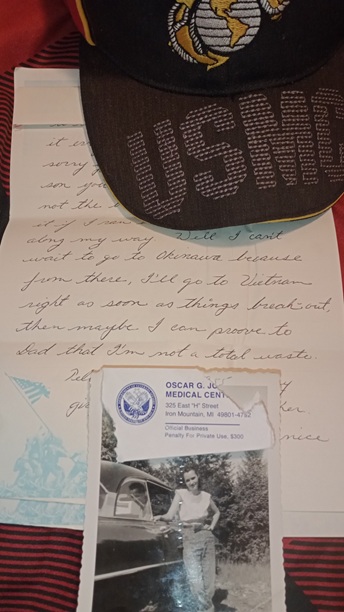 USMC
it
sorry
son you
not the
it if I
along my way. Well I can't
wait to go to Okinawa because
from there, I'll go to Vietnam
right as soon as things break out,
then maybe I can proove to
Dad that I'm not a total waste.
OSCAR G. JO
MEDICAL CENT
325 East "H" Street
Iron Mountain, MI 49801-4792
Official Business
Penalty For Private Use, $300
nice